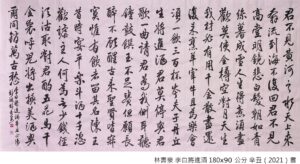 君不見黃河之水天上來
奔流到海不復回君不見
高堂明鏡悲白髮朝如青
絲暮成雪人生得意須盡
歡莫使金樽空對月天生
我材必有用千金散盡還
復來烹羊宰牛且為樂會
須一飲三百杯岑夫子丹丘
生將進酒君莫停與君
歌一曲請君為我傾耳聽
鐘鼓饌玉不足貴但願長
醉不願醒古來聖賢皆寂
寞惟有飲者留其名陳王
昔時宴平樂斗酒十千恣
歡謔主人何為言少錢徑
須沽取對君酌五花馬千
金裘呼兒將出換美酒與
爾同銷萬古愁
李白將進酒 180x90 公分 辛丑 ( 2021 ) 夏